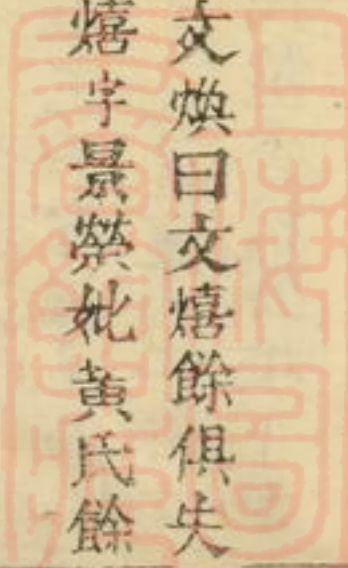 文煥曰文熺餘俱失
熺字景榮妣黄氏餘